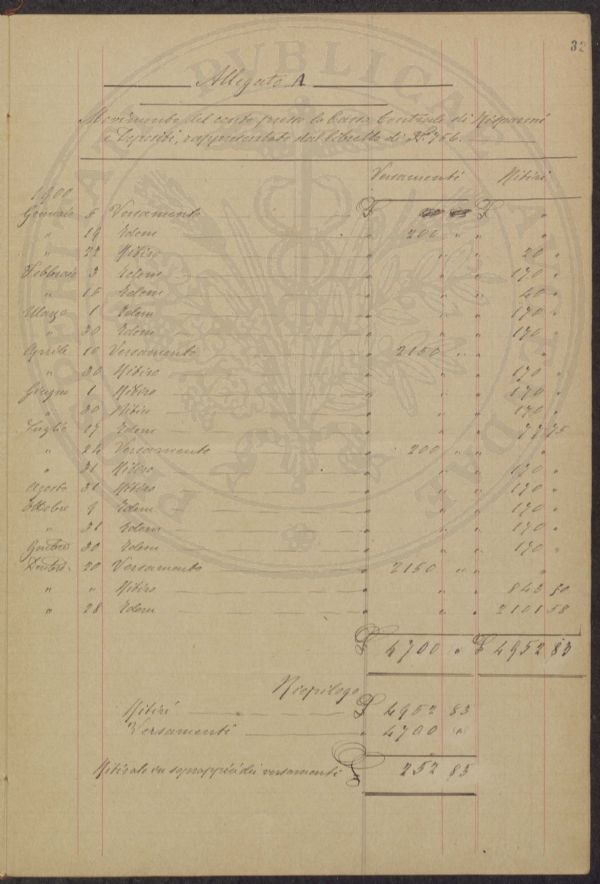 32
Allegato A
Movimento del conto presso la Cassa Centrale di Risparmi
e Depositi, rappresentato dal libretto di N. 756.
Versamenti Ritiri
1900
Gennaio 5 Versamento £ £ "
" 19 Idem " 200 " " "
" 22 Ritiro " " " 20 "
Febbraio 3 Idem " " " 170 "
" 15 Idem " " " 40 "
Marzo 1 Idem " " " 170 "
" 30 Idem " " " 170 "
Aprile 10 Versamento " 2150 " " "
" 30 Ritiro " " " 170 "
Giugno 1 Ritiro " " " 170 "
" 30 Ritiro " " " 170 "
Luglio 17 Idem " " " 77 75
" 24 Versamento " 200 " " "
" 31 Ritiro " " " 170 "
Agosto 31 Ritiro " " " 170 "
Ottobre 9 Idem " " " 170 "
" 31 Idem " " " 170 "
30 Idem " " " 170 "
20 Versamento " 2150 " "
" " Ritiro " " " 842 50
" 28 Idem " " " 2101 58
£ 4700 " £ 4952 83
Riepilogo
Ritiri £ 4952 83
Versamenti " 4700 "
Ritirate in soprappiù dei versamenti £ 252 83